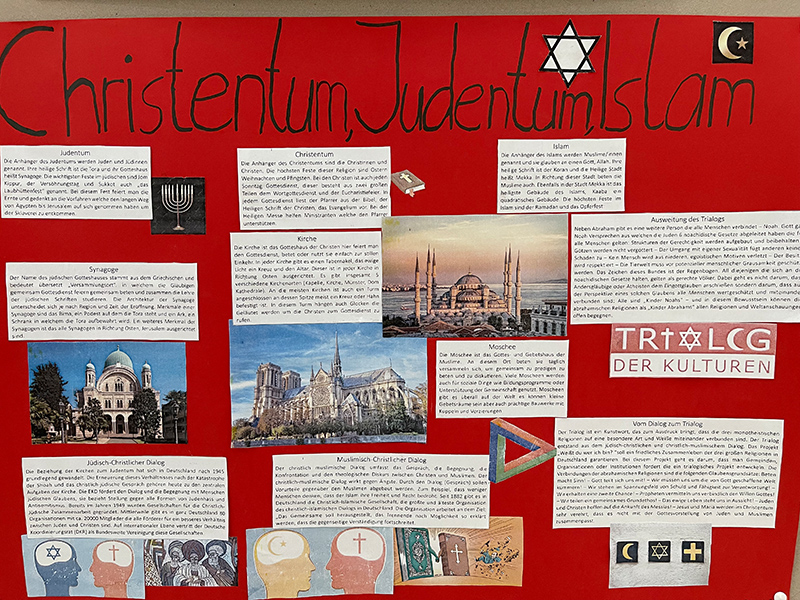 Christentum, Judentum, Islam
Judentum
Die Anhänger des Judentums werden Juden und Jüdinnen
genannt. Ihre heilige Schrift ist die Tora und ihr Gotteshaus
heißt Synagoge. Die wichtigsten Feste im jüdischen sind Jom
Kippur, der Versöhnungstag und Sukkot auch „das
Laubhüttenfest“ genannt. Bei diesem Fest feiert man die
Ernte und gedenkt an die Vorfahren welche den langen Weg
von Ägypten bis Jerusalem auf sich genommen haben um
der Sklaverei zu entkommen.
Christentum
Die Anhänger des Christentums sind die Christinnen und
Christen. Die höchsten Feste dieser Religion sind Ostern
Weihnachten und Pfingsten. Bei den Christen ist auch jeden
Sonntag Gottesdienst, dieser besteht aus zwei großen
Teilen dem Wortgottesdienst und der Eucharistiefeier. In
jedem Gottesdienst liest der Pfarrer aus der Bibel, der
Heiligen Schrift der Christen, das Evangelium vor. Bei der
Heiligen Messe helfen Ministranten welche den Pfarrer
unterstützen.
Islam
Die Anhänger des Islams werden Muslime/innen
genannt und sie glauben an einen Gott, Allah. Ihre
heilige Schrift ist der Koran und die Heilige Stadt
heißt Mekka. In Richtung dieser Stadt beten die
Muslime auch. Ebenfalls in der Stadt Mekka ist das
heiligste Gebäude des Islams, Kaaba ein
quadratisches Gebäude. Die höchsten Feste im
Islam sind der Ramadan und das Opferfest
Synagoge
Der Name des jüdischen Gotteshauses stammt aus dem Griechischen und
bedeutet übersetzt „Versammlungsort“, in welchem die Gläubigen
gemeinsam Gottesdienst feiern gemeinsam beten und zusammen die Lehre
der jüdischen Schriften studieren. Die Architektur der Synagoge
unterscheidet sich je nach Region und Zeit der Eröffnung. Merkmale einer
Synagoge sind das Bima, ein Podest auf dem die Tora steht und ein Ark, ein
Schrank in welchem die Tora aufbewahrt wird. Ein weiteres Merkmal der
Synagogen ist das alle Synagogen in Richtung Osten, Jerusalem ausgerichtet
sind.
Kirche
Die Kirche ist das Gotteshaus der Christen hier feiert man
den Gottesdienst, betet oder nutzt sie einfach zur stillen
Einkehr. In jeder Kirche gibt es einen Tabernakel, das ewige
Licht ein Kreuz und den Altar. Dieser ist in jeder Kirche in
Richtung Osten ausgerichtet. Es gibt insgesamt 5
verschiedene Kirchenarten (Kapelle, Kirche, Münster, Dom
Kathedrale). An die meisten Kirchen ist auch ein Turm
angeschlossen an dessen Spitze meist ein Kreuz oder Hahn
befestigt ist. In diesem Turm hängen auch Glocken die
Geläutet werden um die Christen zum Gottesdienst zu
rufen.
Ausweitung des Trialogs
Neben Abraham gibt es eine weitere Person die alle Menschen verbindet – Noah. Gott gab
Noah Versprechen aus welchen die Juden 6 noachidische Gesetze abgeleitet haben die für
alle Menschen gelten: Strukturen der Gerechtigkeit werden aufgebaut und beibehalten
Götzen werden nicht vergöttert – Der Umgang mit eigener Sexualität fügt anderen keinen
Schaden zu – Kein Mensch wird aus niederen, egoistischen Motiven verletzt – Der Besitz
wird respektiert – Die Tierwelt muss vor potenzieller menschlicher Grausamkeit geschützt
werden. Das Zeichen dieses Bundes ist der Regenbogen. All diejenigen die sich an die
noachidischen Gesetze halten, gelten als gerechte Völker. Dabei geht es nicht darum, dass
Andersgläubige oder Atheisten dem Eingottglauben anschließen sondern darum, dass aus
der Perspektive eines solchen Glaubens alle Menschen wertgeschätzt und miteinander
verbunden sind; Alle sind „Kinder Noahs“ – und in diesem Bewusstsein können die
abrahamischen Religionen als „Kinder Abrahams“ allen Religionen und Weltanschauungen
offen begegnen.
TRIALOG
DER KULTUREN
Moschee
Die Moschee ist das Gottes- und Gebetshaus der
Muslime. An diesem Ort beten sie täglich
versammeln sich, um gemeinsam zu predigen zu
beten und zu diskutieren. Viele Moscheen werden
auch für soziale Dinge wie Bildungsprogramme oder
Unterstützung der Gemeinschaft genutzt. Moscheen
gibt es überall auf der Welt es können kleine
Gebetsräume sein aber auch prächtige Bauwerke mit
Kuppeln und Verzierungen.
Jüdisch-Christlicher Dialog
Die Beziehung der Kirchen zum Judentum hat sich in Deutschland nach 1945
grundlegend gewandelt. Die Erneuerung dieses Verhältnisses nach der Katastrophe
der Shoah und das christlich-jüdische Gespräch gehören heute zu den zentralen
Aufgaben der Kirche. Die EKD fördert den Dialog und die Begegnung mit Menschen
jüdischen Glaubens, sie bezieht Stellung gegen alle Formen von Judenhass und
Antisemitismus. Bereits im Jahren 1949 wurden Gesellschaften für die Christlich-
Jüdische Zusammenarbeit gegründet. Mittlerweile gibt es in ganz Deutschland 80
Organisationen mit ca. 20000 Mitglieder die alle Förderer für ein besseres Verhältnis
zwischen Juden und Christen sind. Auf internationaler Ebene vertritt der Deutsche
Koordinierungsrat (DKR) als Bundesweite Vereinigung diese Gesellschaften.
Muslimisch-Christlicher Dialog
Der christlich muslimische Dialog umfasst das Gespräch, die Begegnung, die
Konfrontation und den theologischen Diskurs zwischen Christen und Muslimen. Der
christlich-muslimische Dialog wirkt gegen Ängste. Durch den Dialog (Gespräch) sollen
Vorurteile gegenüber den Muslimen abgebaut werden. Zum Beispiel, dass weniger
Menschen denken, dass der Islam ihre Freiheit und Recht bedroht. Seit 1982 gibt es in
Deutschland die Christlich-Islamische Gesellschaft, die größte und älteste Organisation
des christlich-islamischen Dialogs in Deutschland. Die Organisation arbeitet an dem Ziel:
„Das Gemeinsame soll herausgestellt, das Trennende nach Möglichkeit so erklärt
werden, dass die gegenseitige Verständigung fortschreitet.
Vom Dialog zum Trialog
Der Trialog ist ein Kunstwort, das zum Ausdruck bringt, dass die drei monotheistischen
Religionen auf eine besondere Art und Weiße miteinander verbunden sind. Der Trialog
entstand aus dem jüdisch-christlichen und christlich-muslimischen Dialog. Das Projekt
„Weißt du wer ich bin?“ soll ein friedliches Zusammenleben der drei großen Religionen in
Deutschland garantieren. Bei diesem Projekt geht es darum, dass man Gemeinden,
Organisationen oder Institutionen fordert die ein trialogisches Projekt entwickeln. Die
Verbindungen der abrahamischen Religionen sind die folgenden Glaubensgrundsätze: Beten
macht Sinn! – Gott teilt sich uns mit! – Wir müssen uns um die von Gott geschaffene Welt
kümmern! – Wir stehen im Spannungsfeld von Schuld und Fähigkeit zur Verantwortung! –
Wir erhalten eine zweite Chance! – Propheten vermitteln uns verlässlich den Willen Gottes!
– Wir teilen ein gemeinsames Grundethos! – Das ewige Leben steht uns in Aussicht! – Juden
und Christen hoffen auf die Ankunft des Messias! – Jesus und Maria werden im Christentum
sehr verehrt, dass es nicht mit der Gottesvorstellung von Juden und Muslimen
zusammenpasst!